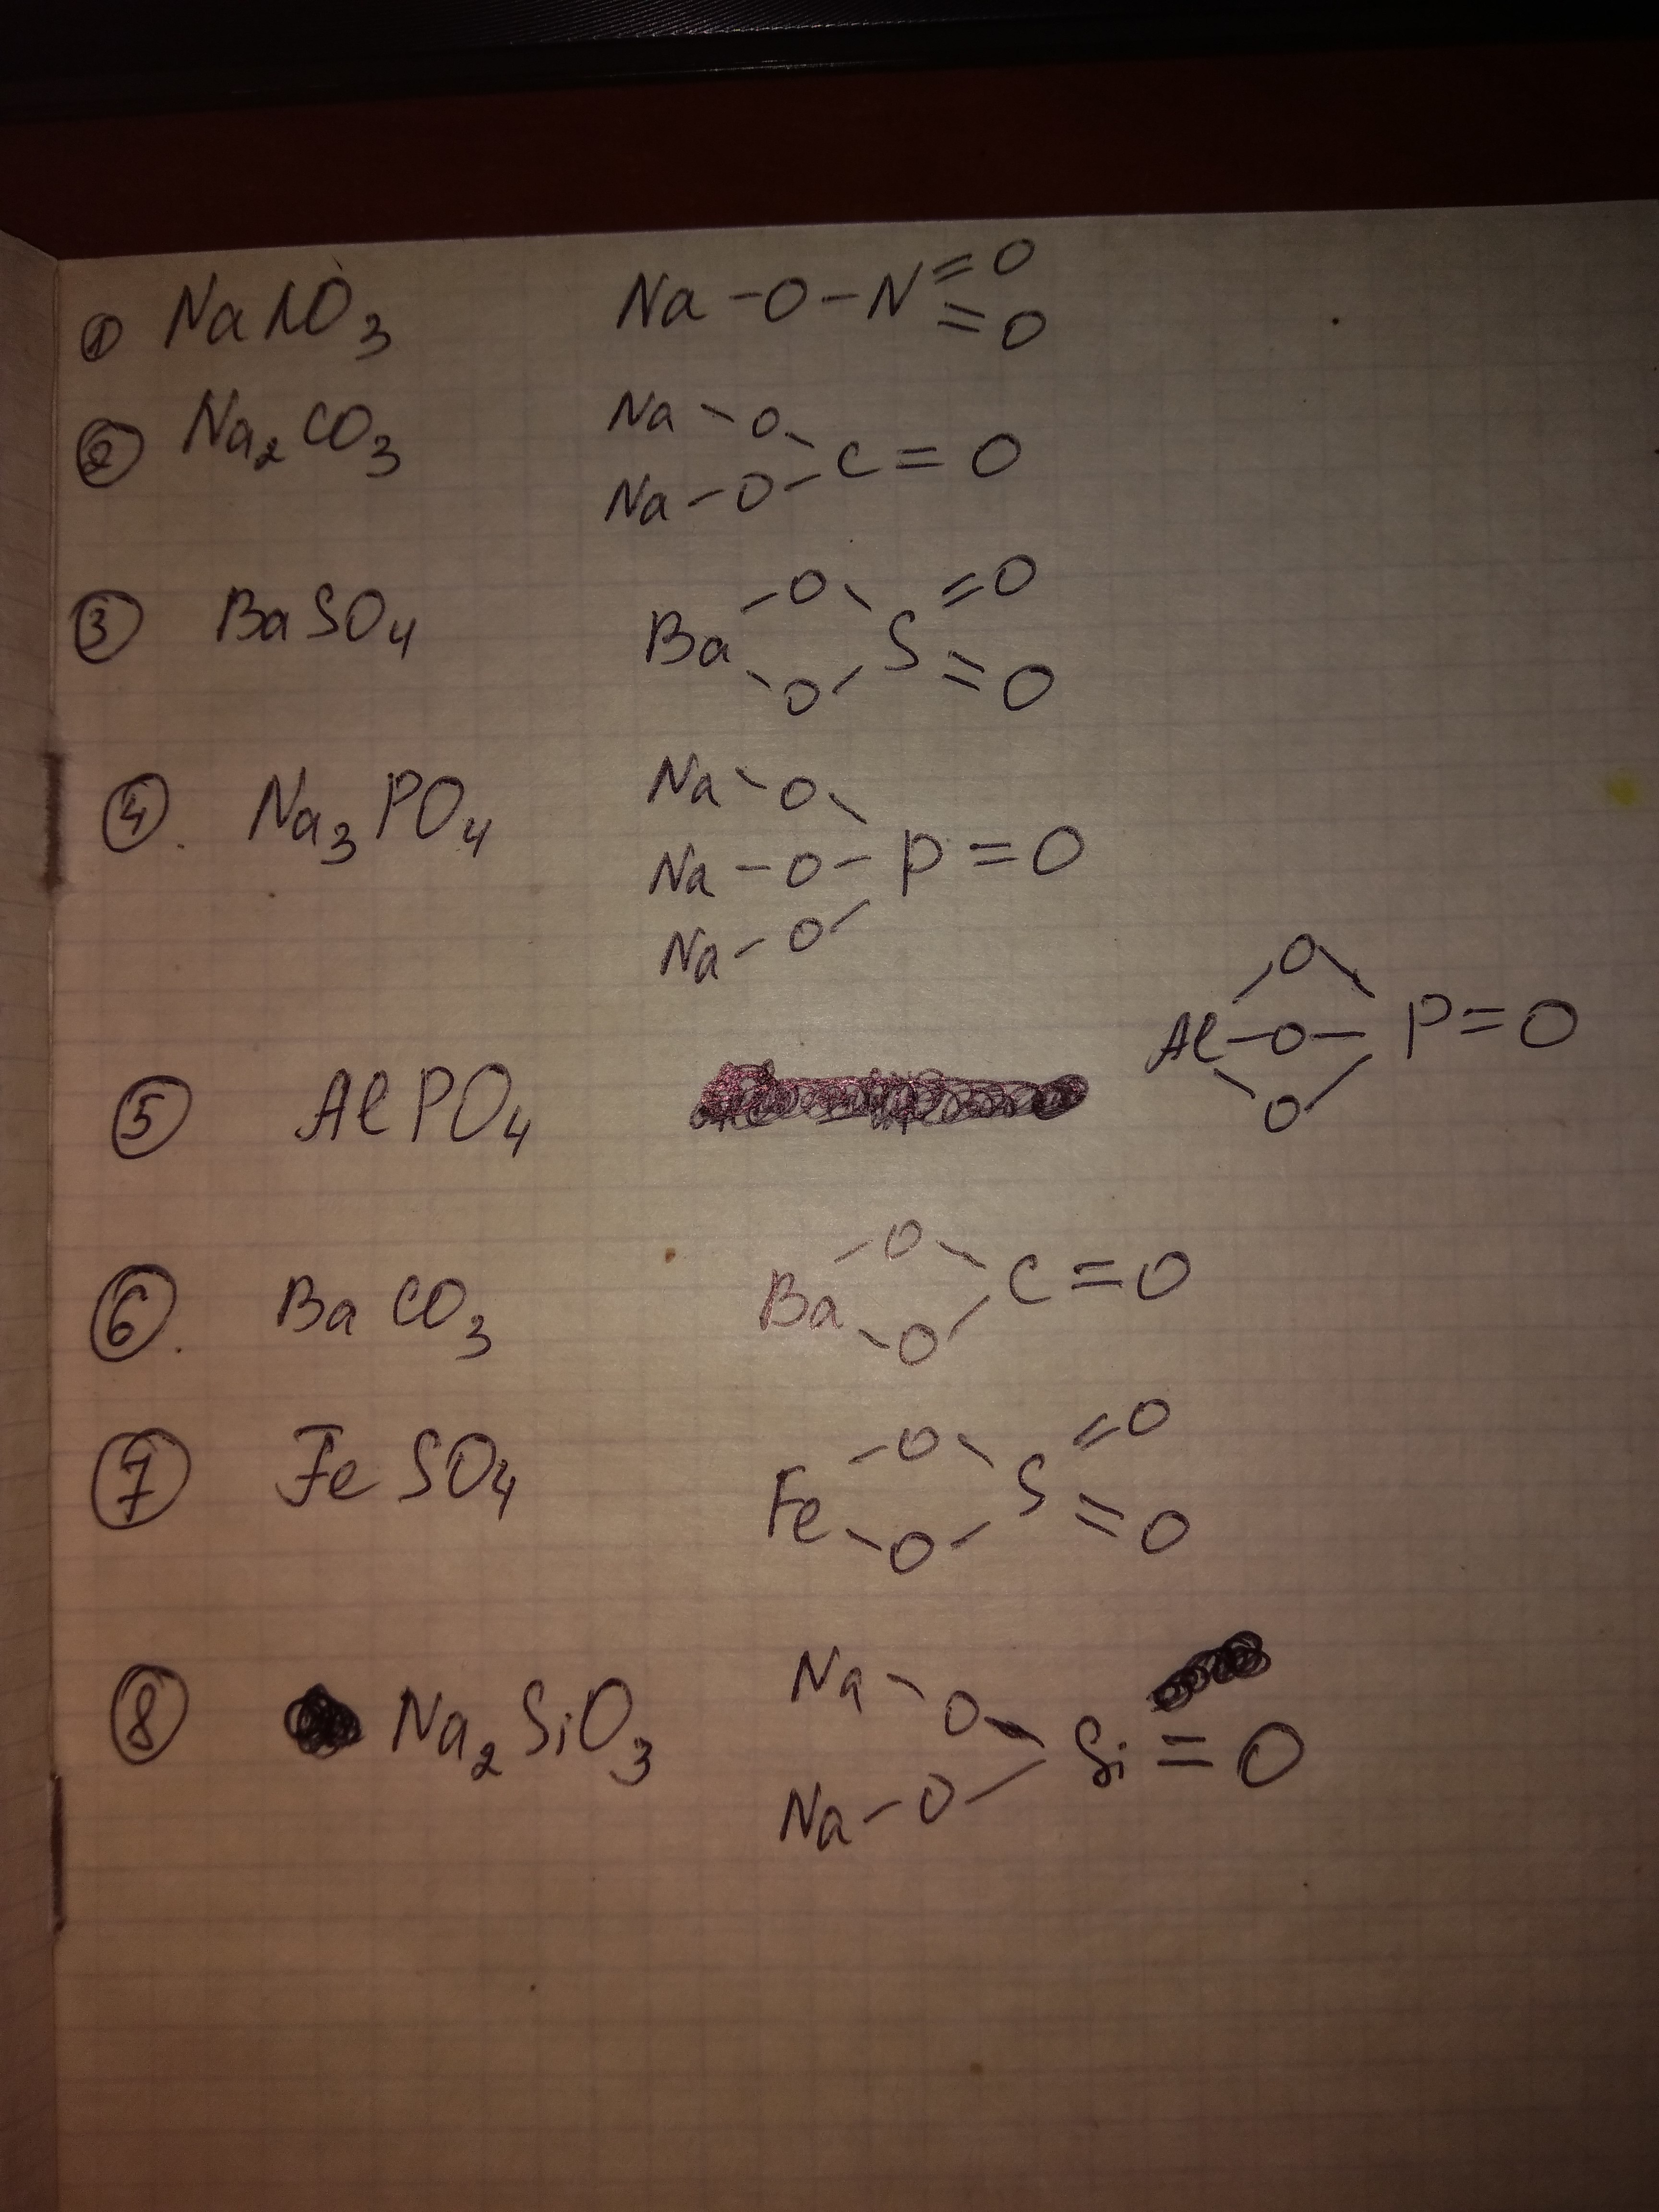 ① NaNO₃ Na-O-N=O
=O
② Na₂CO₃ Na-O-C=O
Na-O-
③ BaSO₄ Ba-O-S=O
-O- =O
④. Na₃PO₄ Na-O-
Na-O-P=O
Na-O-
⑤ AlPO₄ -O-
Al-O-P=O
-O-
⑥. BaCO₃ Ba-O-C=O
-O-
⑦ FeSO₄ Fe-O-S=O
-O- =O
⑧ Na₂SiO₃ Na-O-Si=O
Na-O-